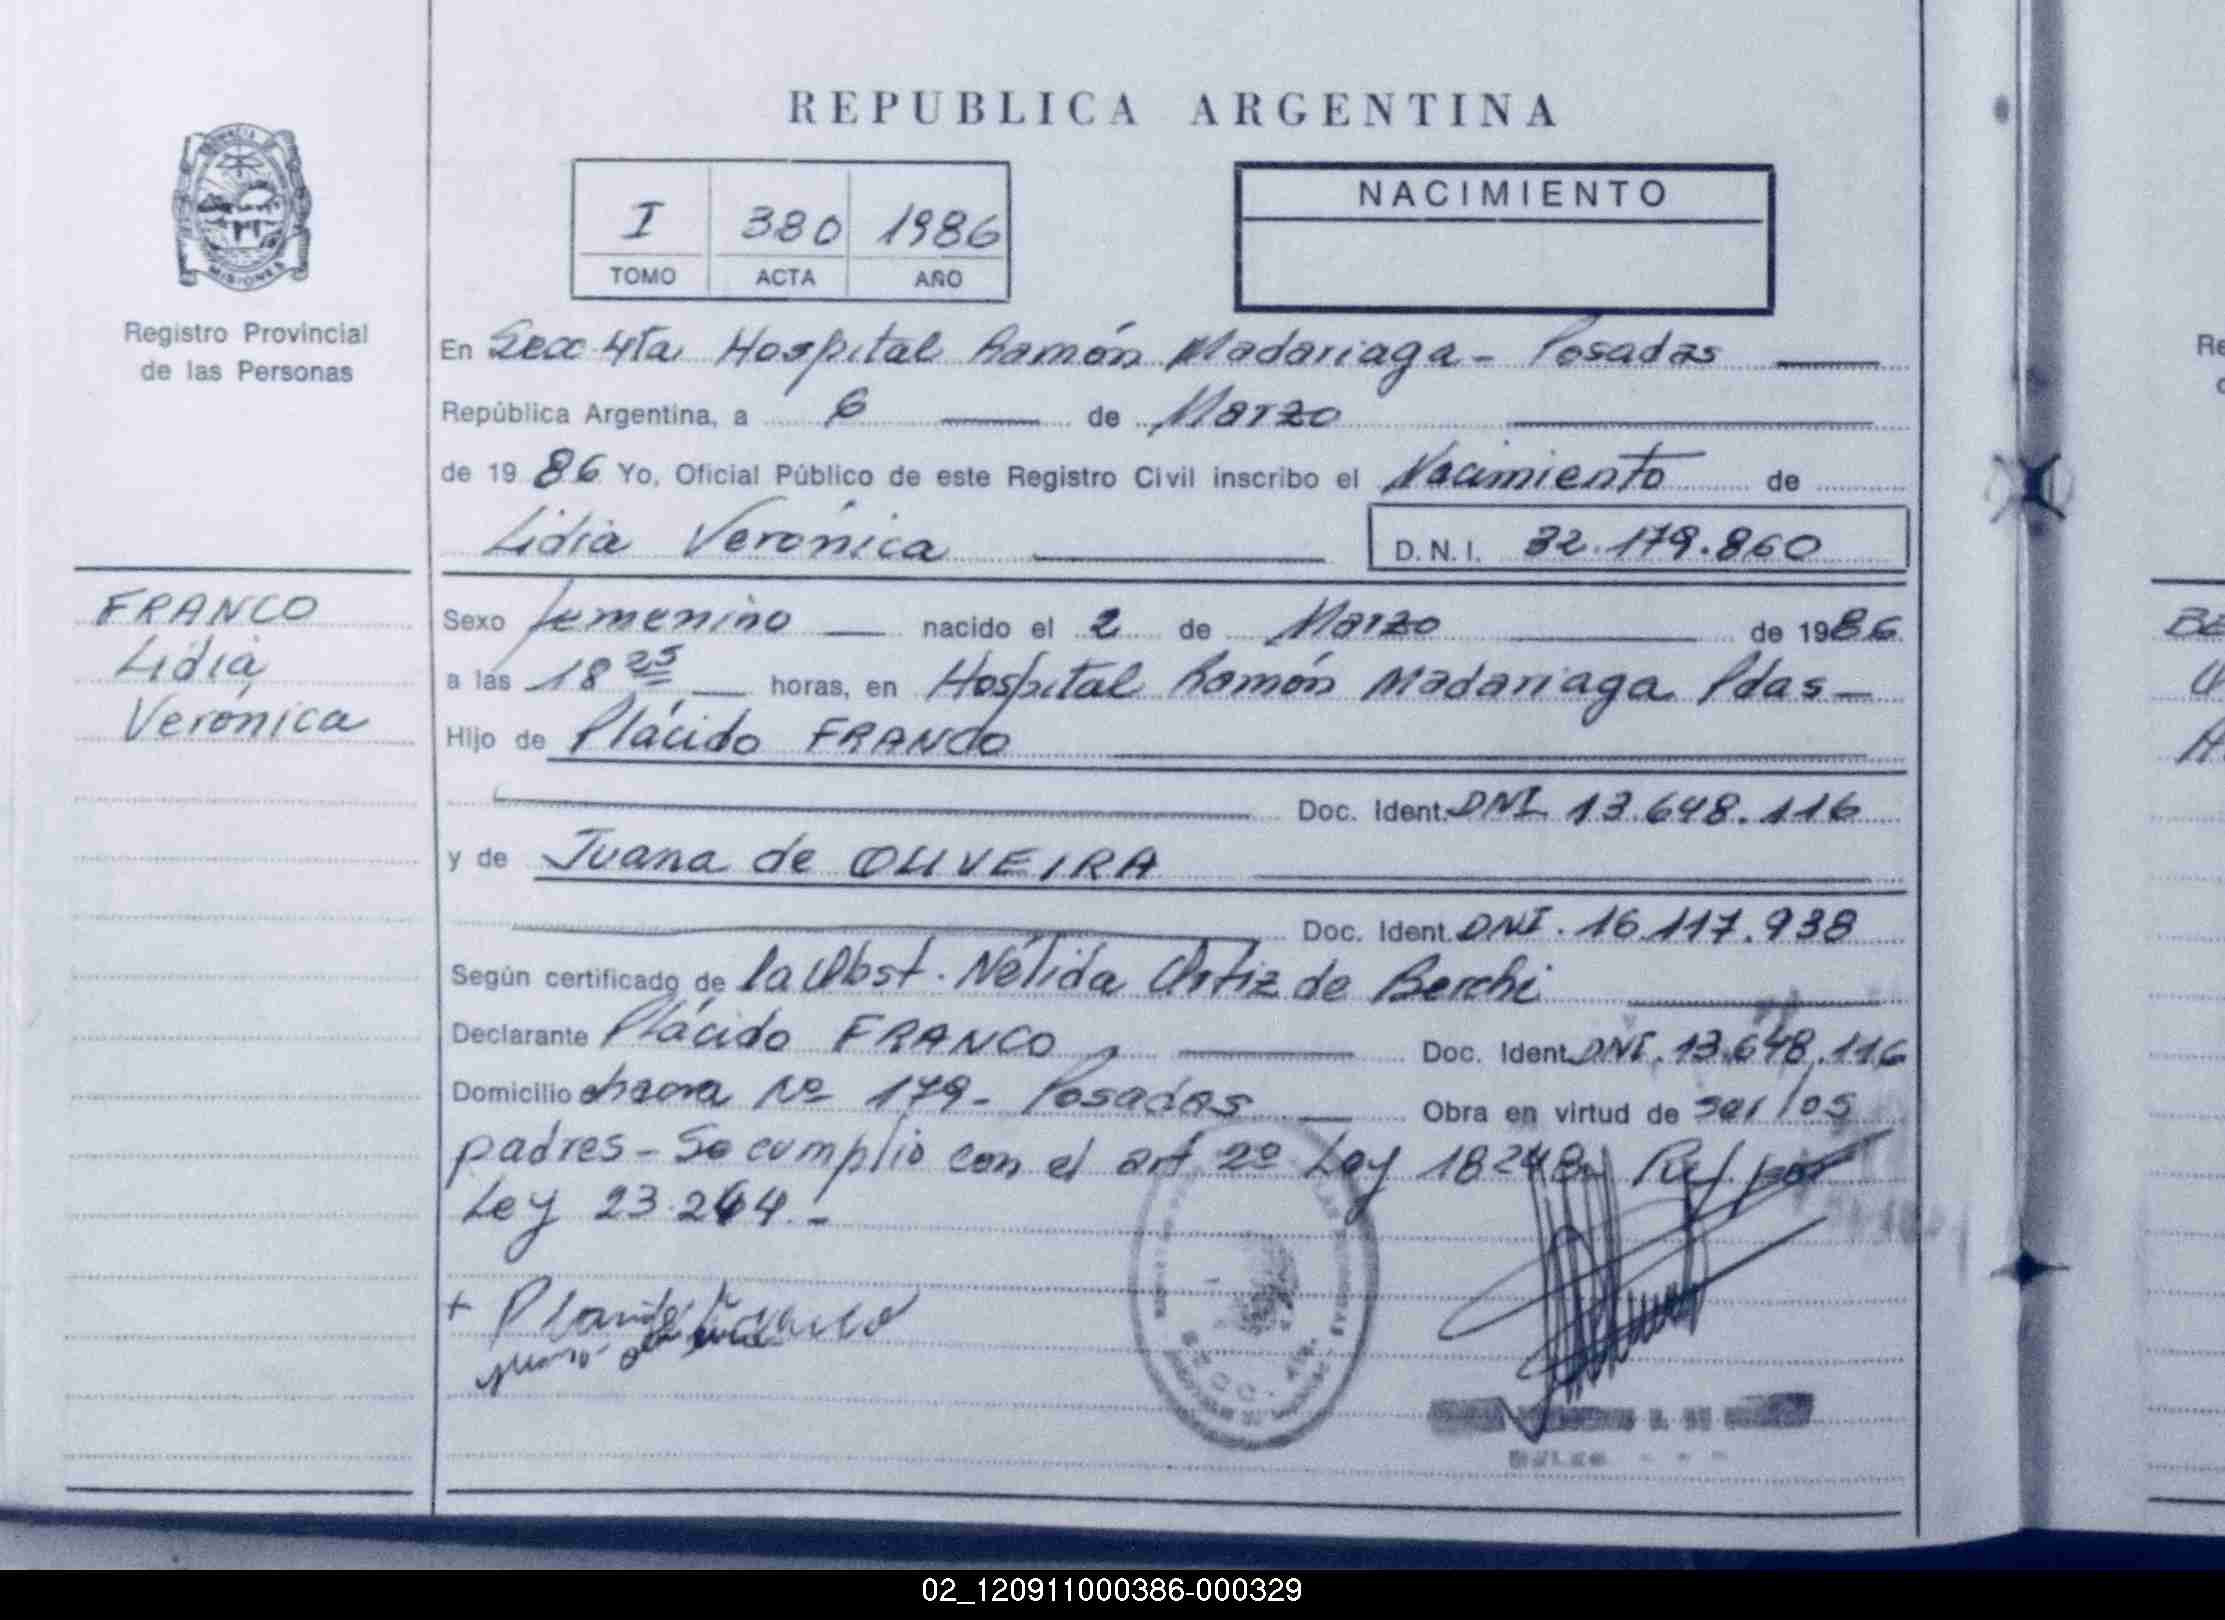 REPUBLICA ARGENTINA
MISIONES
Registro Provincial
de las Personas
I 380 1986
TOMO ACTA AÑO
NACIMIENTO
En Secc 4ta Hospital Ramón Madariaga - Posadas
República Argentina, a 6 de Marzo
de 1986 Yo, Oficial Público de este Registro Civil inscribo el Nacimiento de
Lidia Verónica D.N.I. 32.179.860
FRANCO
Lidia
Verónica
Sexo femenino nacido el 2 de Marzo de 1986
a las 18 25 horas, en Hospital Ramón Madariaga Pdas -
Hijo de Plácido FRANCO
Doc. Ident. DNI 13.648.116
y de Juana de OLIVEIRA
Doc. Ident. DNI. 16.117.938
Según certificado de la Obst. Nélida Ortiz de Berchi
Declarante Plácido FRANCO Doc. Ident. DNI. 13.648.116
Domicilio chacra Nº 179 - Posadas Obra en virtud de ser los
padres - Se cumplio con el art 2º Ley 18248 Ref. por
Ley 23.264.-
02_120911000386-000329